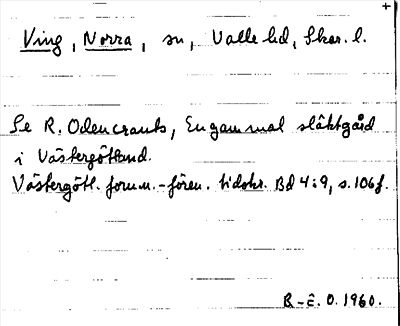 +
Ving, Norra, sn, Valle hd, Skar. l.
Se R. Odencrants, En gammal släktgård
i Västergötland.
Västergötl. fornm.-fören. tidskr. Bd 4:9, s. 106 f.
R-č. O. 1960.